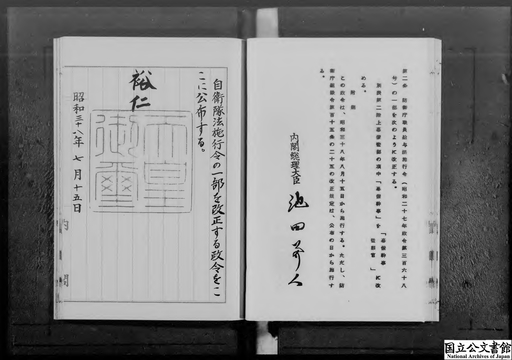 第二条　防衛庁職員給与法施行令（昭和二十七年政令第三百六十八
号）の一部を次のように改正する。
める。
附則
この政令は、昭和三十八年八月十五日から施行する。ただし、防
衛庁組織令第百十五条の二十五の改正規定は、公布の日から施行す
る。
内閣総理大臣
池田勇人
自衛隊法施行令の一部を改正する政令をこ
こに公布する。
裕仁
天皇御璽
昭和三十八年七月十五日
内閣
国立公文書館
National Archives of Japan